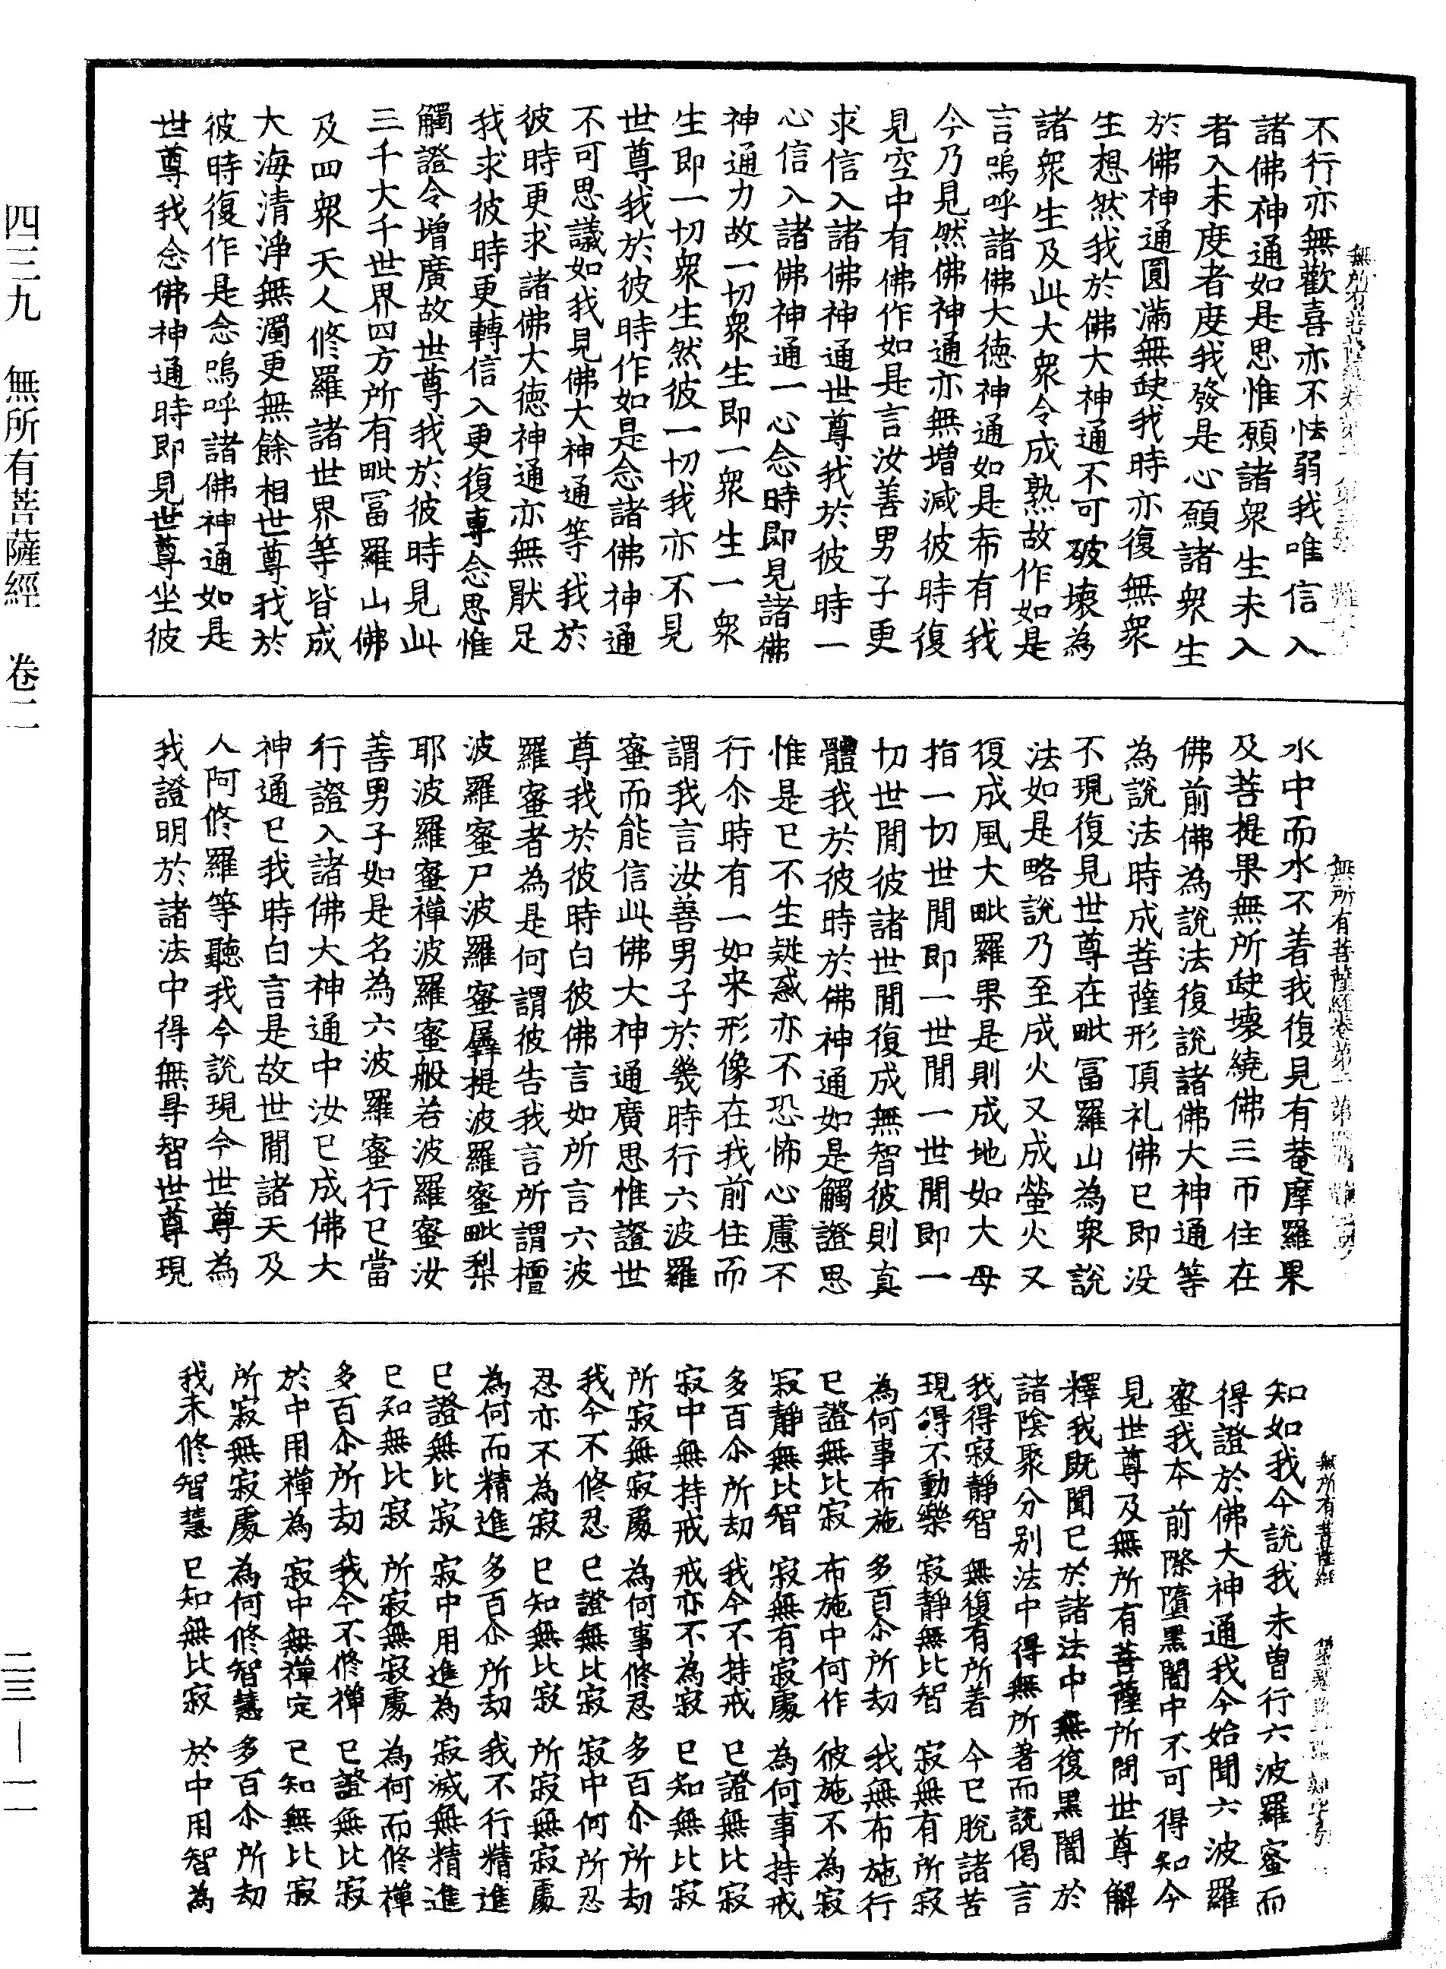 不行亦無歡喜亦不怯弱我唯信入
諸佛神通如是思惟願諸衆生未入
者入未度者度我發是心願諸衆生
於佛神通圓滿無缺我時亦復無衆
生想然我於佛大神通不可破壞為
諸衆生及此大衆令成熟故作如是
言嗚呼諸佛大德神通如是希有我
今乃見然佛神通亦無增減彼時復
見空中有佛作如是言汝善男子更
求信入諸佛神通世尊我於彼時一
心信入諸佛神通一心念時即見諸佛
神通力故一切衆生即一衆生一衆
生即一切衆生然彼一切我亦不見
世尊我於彼時作如是念諸佛神通
不可思議如我見佛大神通等我於
彼時更求諸佛大德神通亦無猒足
我求彼時更轉信入更復專念思惟
觸證令增廣故世尊我於彼時見此
三千大千世界四方所有毗富羅山佛
及四衆天人修羅諸世界等皆成
大海清淨無濁更無餘相世尊我於
彼時復作是念嗚呼諸佛神通如是
世尊我念佛神通時即見世尊坐彼
水中而水不著我復見有菴摩羅果
及菩提果無所缺壞繞佛三帀住在
佛前佛為說法復說諸佛大神通等
為說法時成菩薩形頂礼佛已即没
不現復見世尊在毗富羅山為衆說
法如是略說乃至成火又成螢火又
復成風大毗羅果是則成地如大母
指一切世間即一世間一世間即一
切世間彼諸世間復成無智彼則真
體我於彼時於佛神通如是觸證思
惟是已不生疑惑亦不恐怖心慮不
行尒時有一如来形像在我前住而
謂我言汝善男子於幾時行六波羅
蜜而能信此佛大神通廣思惟證世
尊我於彼時白彼佛言如所言六波
羅蜜者為是何謂彼告我言所謂檀
波羅蜜尸波羅蜜羼提波羅蜜毗梨
耶波羅蜜禅波羅蜜般若波羅蜜汝
善男子如是名為六波羅蜜行已當
行證入諸佛大神通中汝已成佛大
神通已我時白言是故世間諸天及
人阿修羅等聽我今說現今世尊為
我證明於諸法中得無㝵智世尊現
知如我今說我未曾行六波羅蜜而
得證於佛大神通我今始聞六波羅
蜜我本前際墮黑闇中不可得知今
見世尊及無所有菩薩所問世尊解
釋我既聞已於諸法中無復黑闇於
諸陰聚分別法中得無所著而說偈言
我得寂靜智　無復有所著　今已脫諸苦
現得不動樂　寂靜無比智　寂無有所寂
為何事布施　多百尒所劫　我無布施行
已證無比寂　布施中何作　彼施不為寂
寂靜無比智　寂無有寂處　為何事持戒
多百尒所劫　我今不持戒　已證無比寂
寂中無持戒　戒亦不為寂　已知無比寂
所寂無寂處　為何事修忍　多百尒所劫
我今不修忍　已證無比寂　寂中何所忍
忍亦不為寂　已知無比寂　所寂無寂處
為何而精進　多百尒所劫　我不行精進
已證無比寂　寂中用進為　寂滅無精進
已知無比寂　所寂無寂處　為何而修禅
多百尒所劫　我今不修禅　已證無比寂
於中用禅為　寂中無禅定　已知無比寂
所寂無寂處　為何修智慧　多百尒所劫
我未修智慧　已知無比寂　於中用智為
無所有菩薩經卷第二
無所有菩薩經卷第二
無所有菩薩經
四三九　無所有菩薩經　卷二
二三—一一